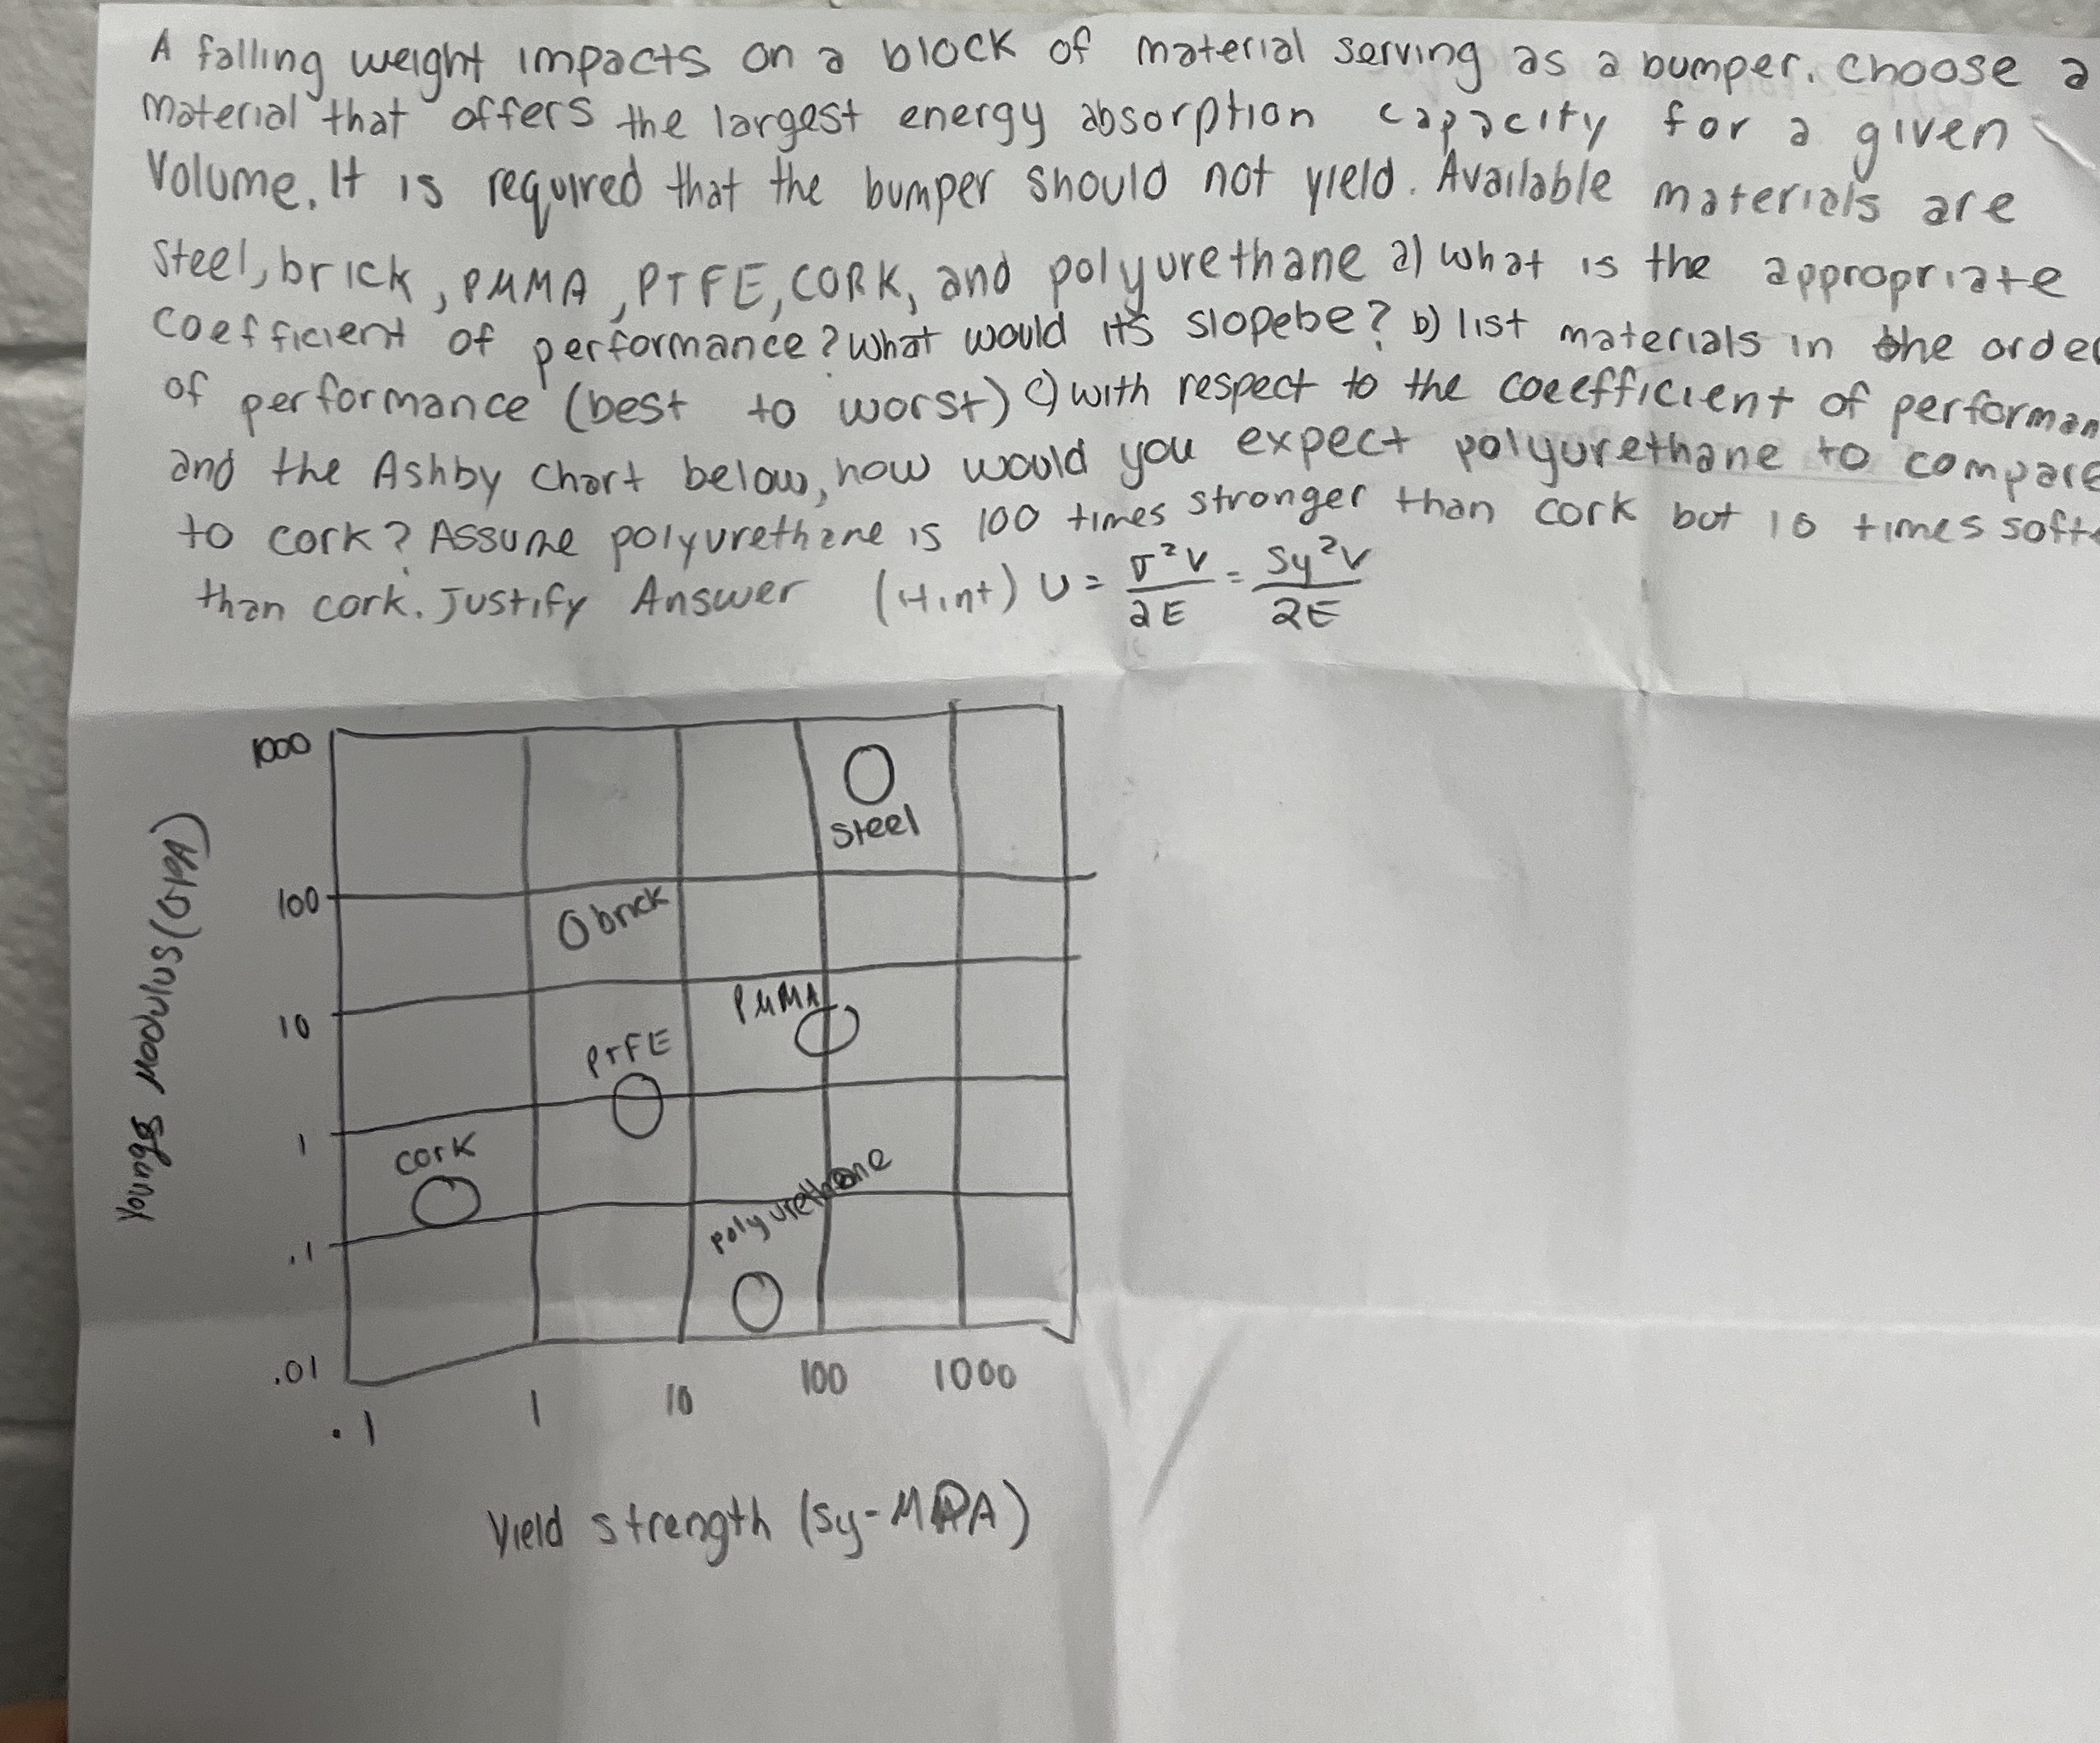 A falling weight impacts on a block of material serving as a bumper. choose a
material that offers the largest energy absorption capacity for a given
Volume. It is required that the bumper should not yield. Available materials are
Steel, brick, PMMA, PTFE, CORK, and polyurethane a) what is the appropriate
coefficient of performance? What would its slopebe? b) list materials in the
of performance (best to worst) c) with respect to the coeefficient of
and the Ashby chart below, how would you expect polyurethane to compare
to cork? Assume polyurethane is 100 times stronger than cork but 10 times
than cork. Justify Answer (Hint) U = σ²V/2E = Sy²V/2E
1000
steel
100
brick
10
PMMA
PTFE
1
cork
polyurethane
.1
.01
.1 1 10 100 1000
Youngs Modulus (GPA)
Yield strength (Sy-MPA)